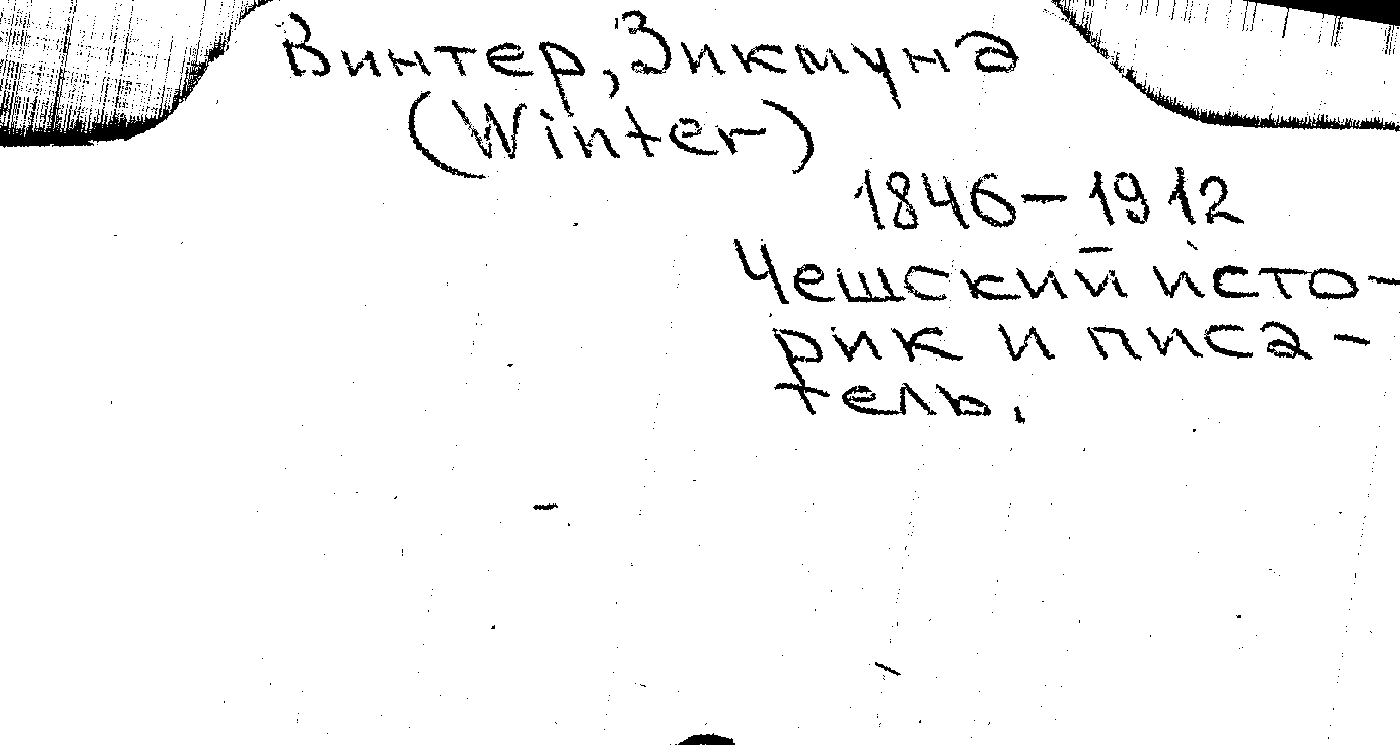 Винтер, Зикмунд
(Winter)
1846-1912
Чешский исто-
рик и писа-
тель.